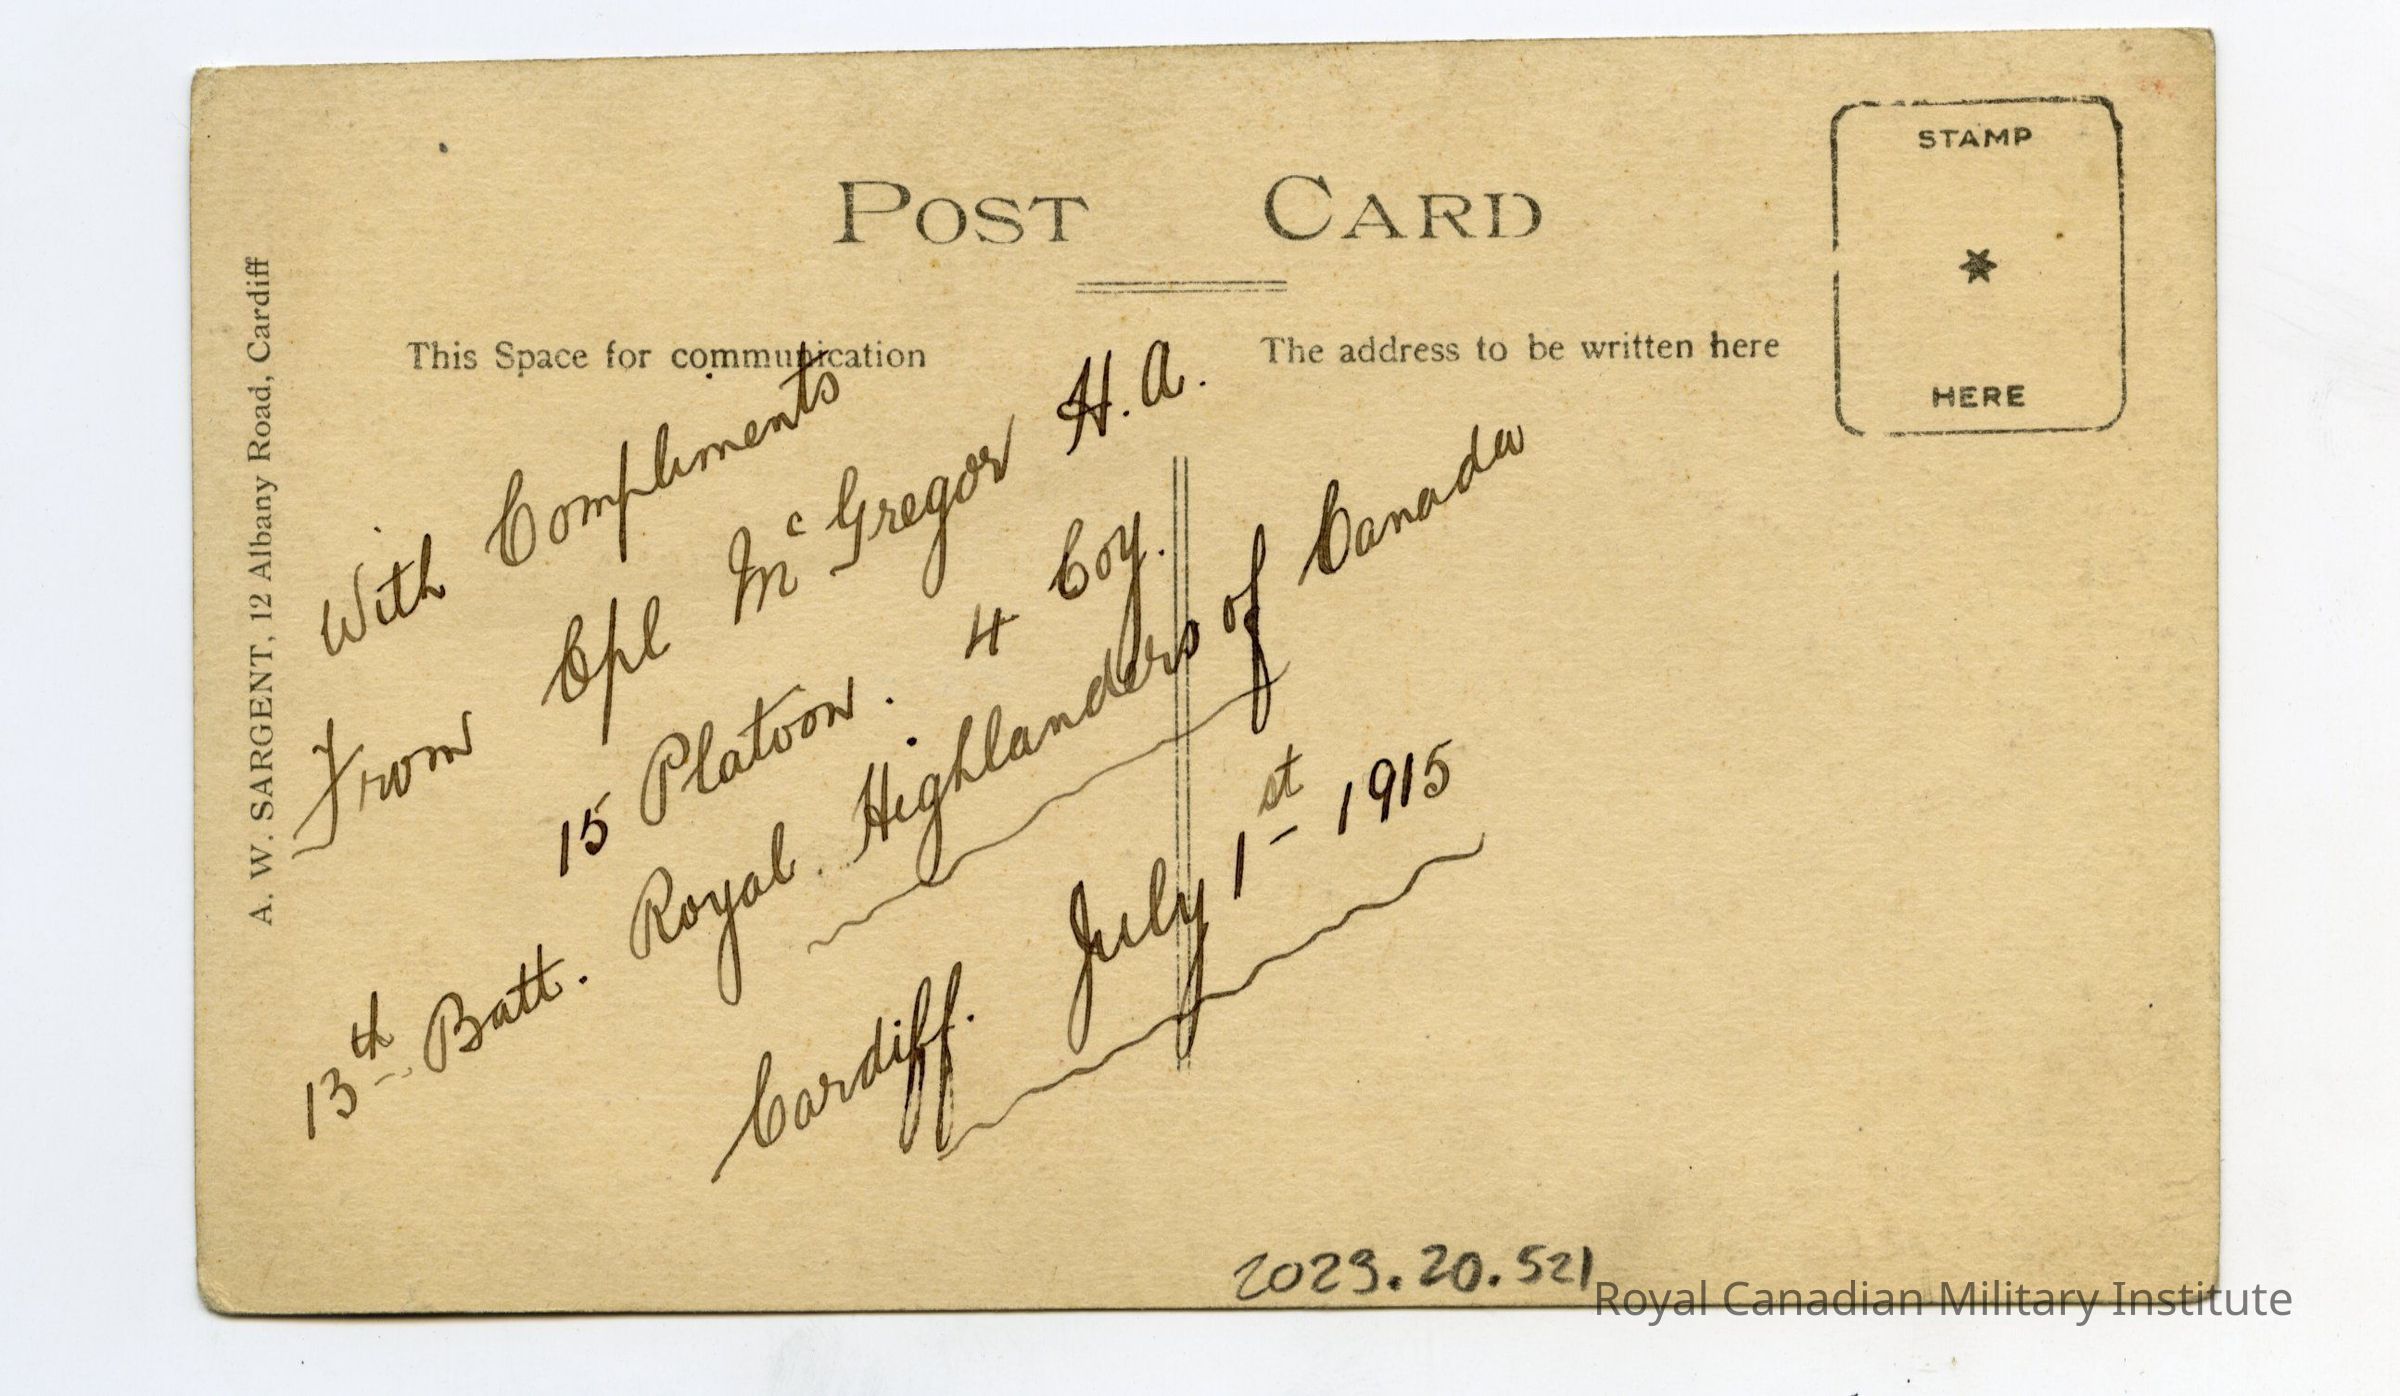 POST CARD
STAMP
HERE
This Space for communication
The address to be written here
A. W. SARGENT, 12 Albany Road, Cardiff
With Compliments
From Cpl McGregor H. A.
15 Platoon. 4 Coy.
13th Batt. Royal Highlanders of Canada
Cardiff. July 1st 1915
2023.20.521
Royal Canadian Military Institute